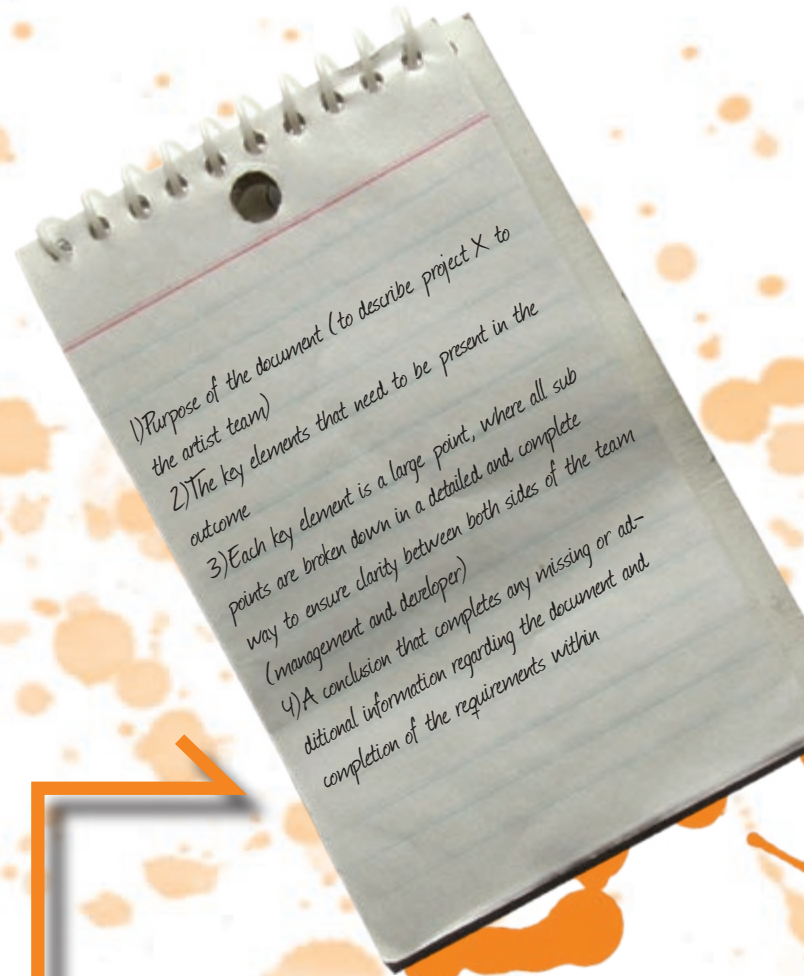 1)Purpose of the document (to describe project X to
the artist team)
2)The key elements that need to be present in the
outcome
3)Each key element is a large point, where all sub
points are broken down in a detailed and complete
way to ensure clarity between both sides of the team
(management and developer)
4)A conclusion that completes any missing or ad-
ditional information regarding the document and
completion of the requirements within